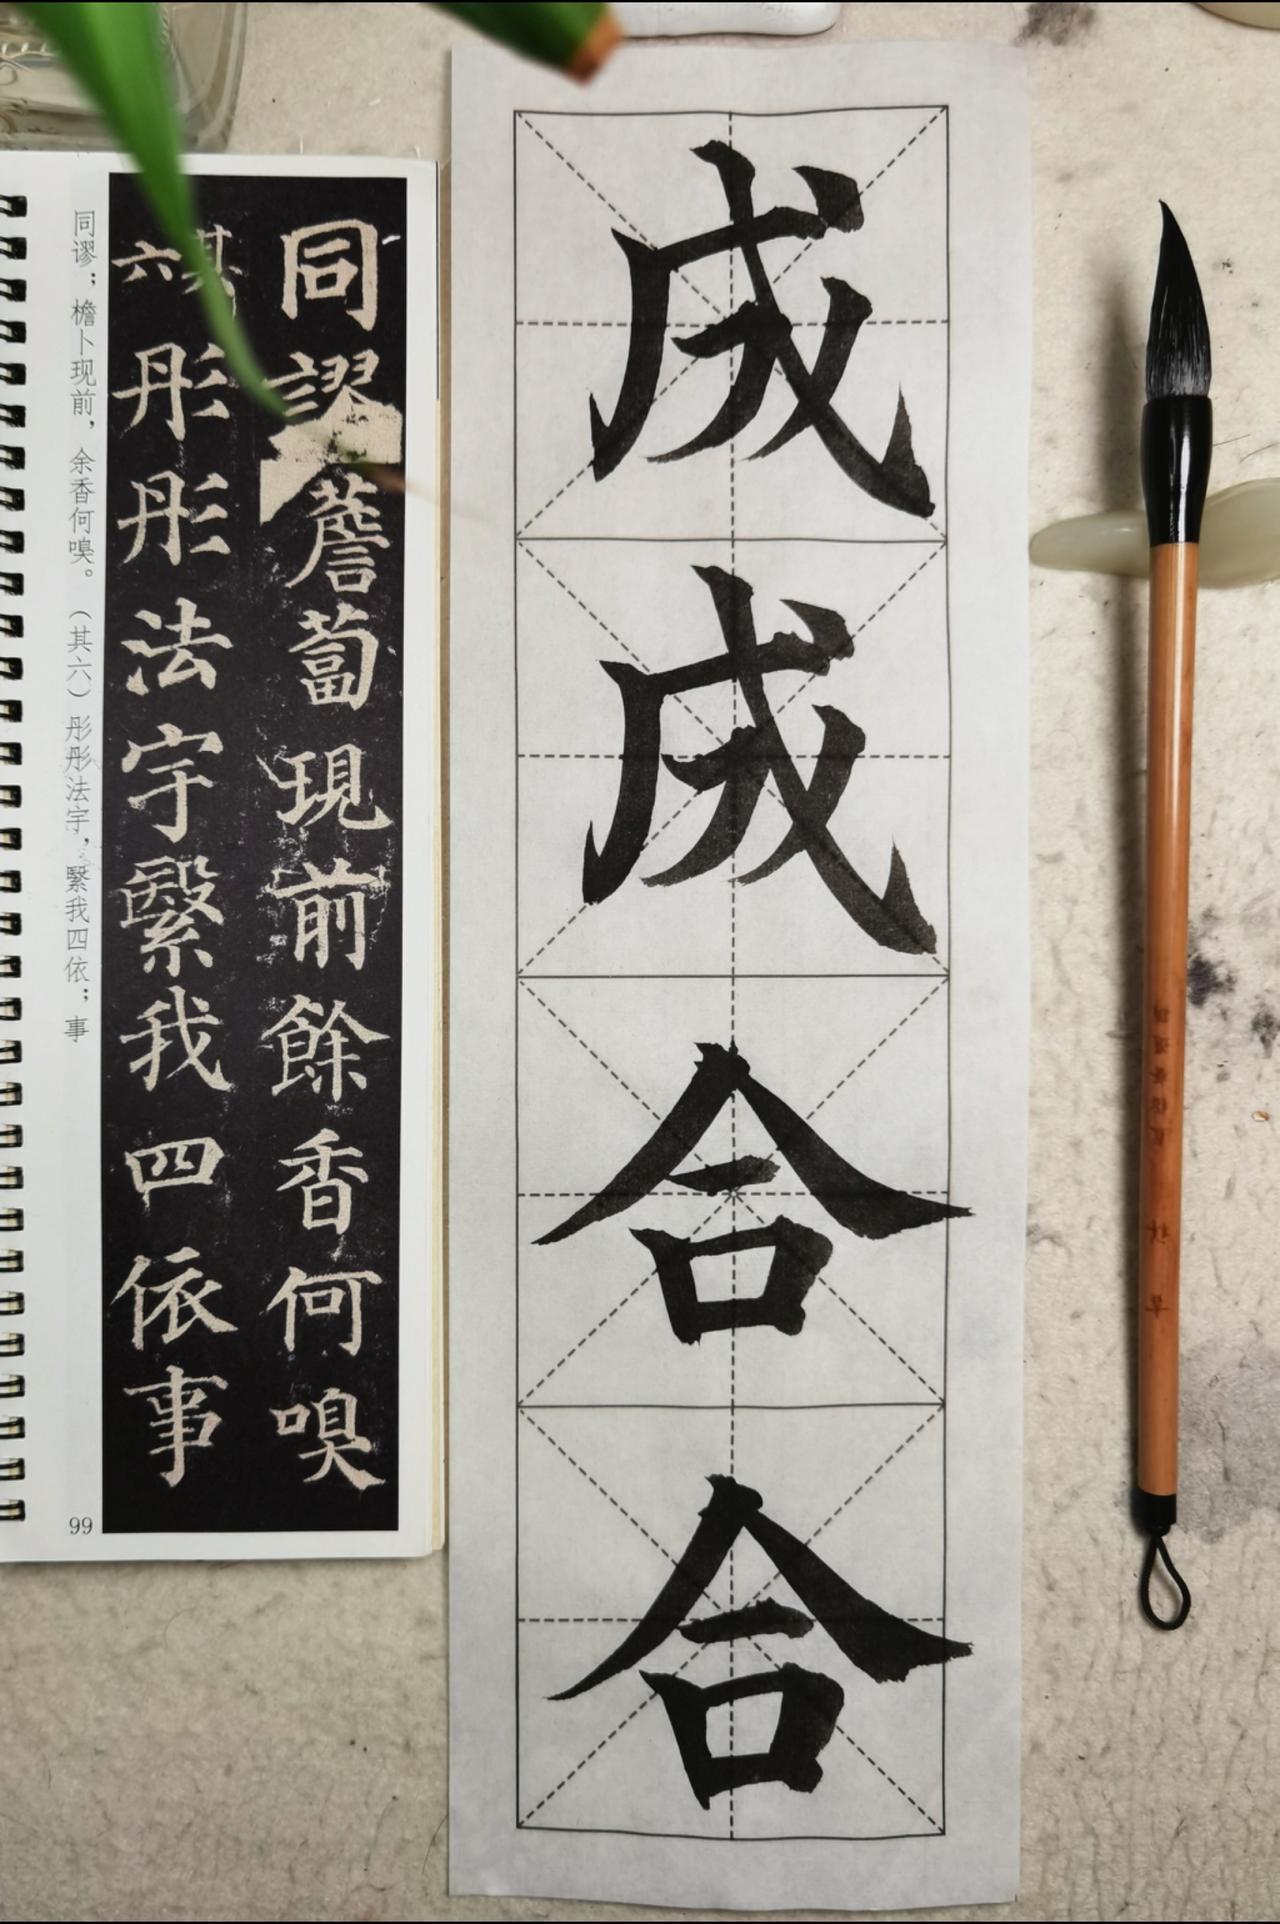 成成合合
同謬薝蔔現前餘香何嗅
其六彤彤法宇繄我四依事
同谬；檐卜现前，余香何嗅。（其六）彤彤法宇，繄我四依；事
99